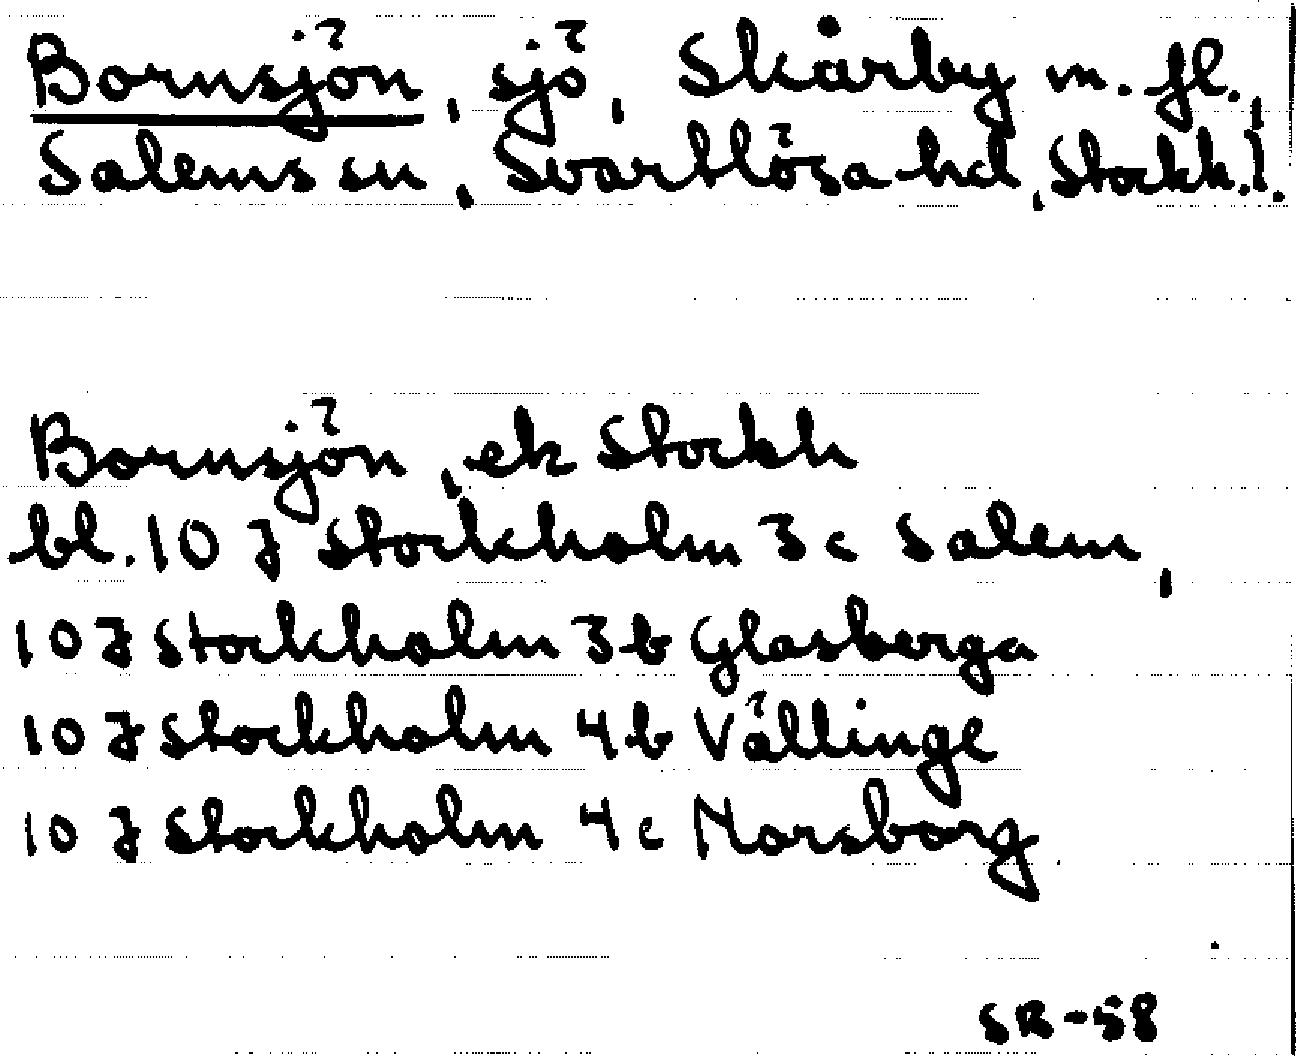 Bornsjön, sjö, Skårby m. fl.,
Salems sn, Svartlösa hd, Stockh. l.
Bornsjön, ek Stockh
bl. 10 J Stockholm 3 c Salem,
10 J Stockholm 3 b Glasberga
10 J Stockholm 4 b Vällinge
10 J Stockholm 4 c Norsborg
SR-58